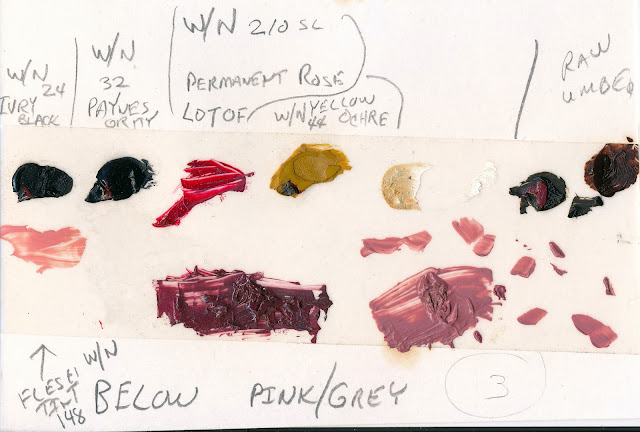 W/N 24
IVRY
BLACK
W/N
32
PAYNES
GRAY
W/N 210 SL
PERMANENT ROSE
LOT OF
W/N YELLOW
44 OCHRE
RAW
UMBER
↑ W/N
FLESH
TINT
148
BELOW PINK/GREY
3